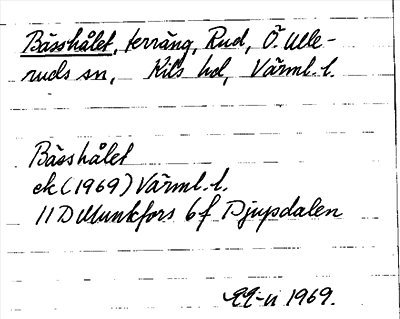 Bässhålet, terräng, Rud, Ö. Ulle-
ruds sn, Kils hd, Värml. l.
Bässhålet
ek (1969) Värml. l.
11 D Munkfors 6 f Djupsdalen
1969.